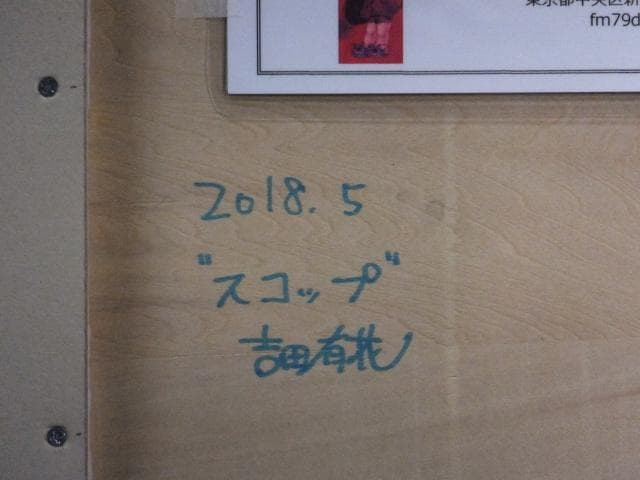 東京都中央区新
fm79d
2018.5
"スコップ"
吉田有花